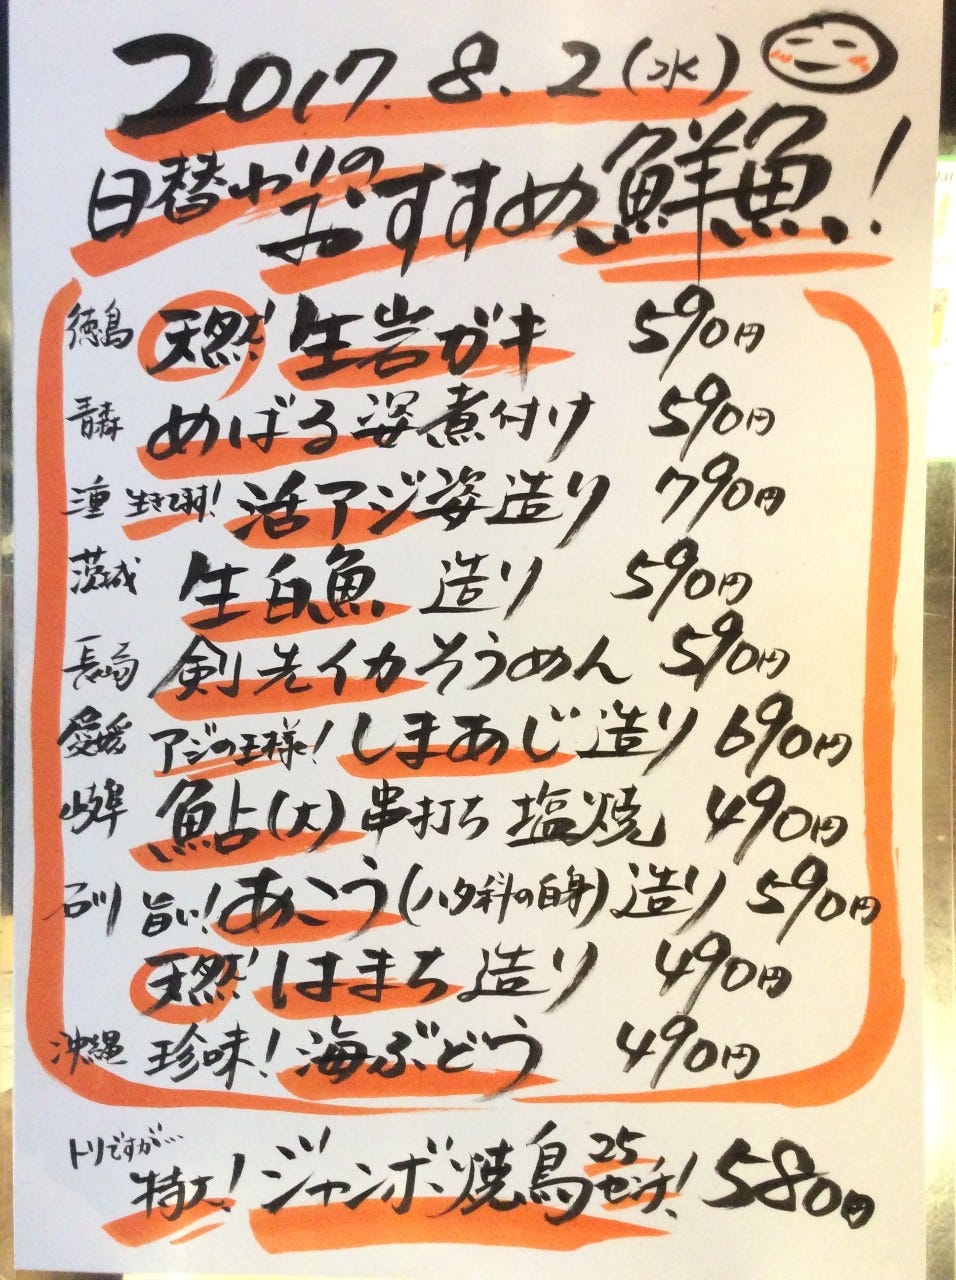 2017.8.2(水)
日替わりの
おすすめ鮮魚!
徳島 天然! 生岩ガキ 590円
青森 めばる姿煮付け 590円
生きてます! 活アジ姿造り 790円
茨城 生白魚 造り 590円
長崎 剣先イカそうめん 590円
愛媛 アジの王様! しまあじ造り 690円
岐阜 鮎(大)串打ち 塩焼 490円
石川 旨い! あこう(ハタ科の白身)造り 590円
天然! はまち造り 490円
沖縄 珍味! 海ぶどう 490円
トリですが…
特大! ジャンボ焼鳥 25センチ! 580円